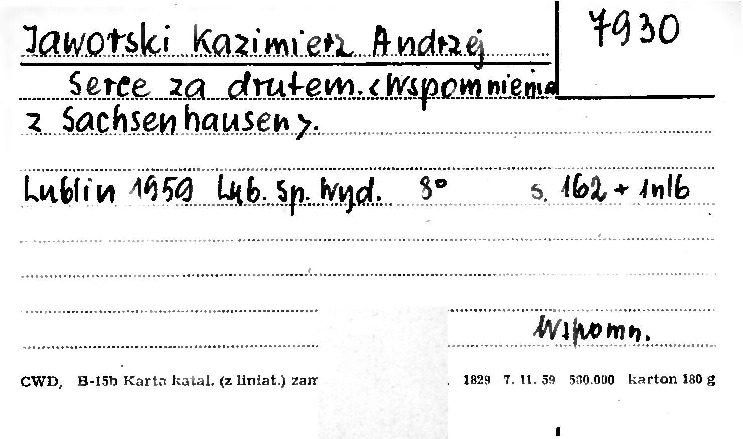 Jaworski Kazimierz Andrzej
7930
Serce za drutem. <Wspomnienia
z Sachsenhausen>.
Lublin 1959 Lub. Sp. Wyd. 8° s. 162 + 1nlb
Wspomn.
CWD, B-15b Karta katal. (z liniat.) zam . 1829 7. 11. 59 500.000 karton 180 g